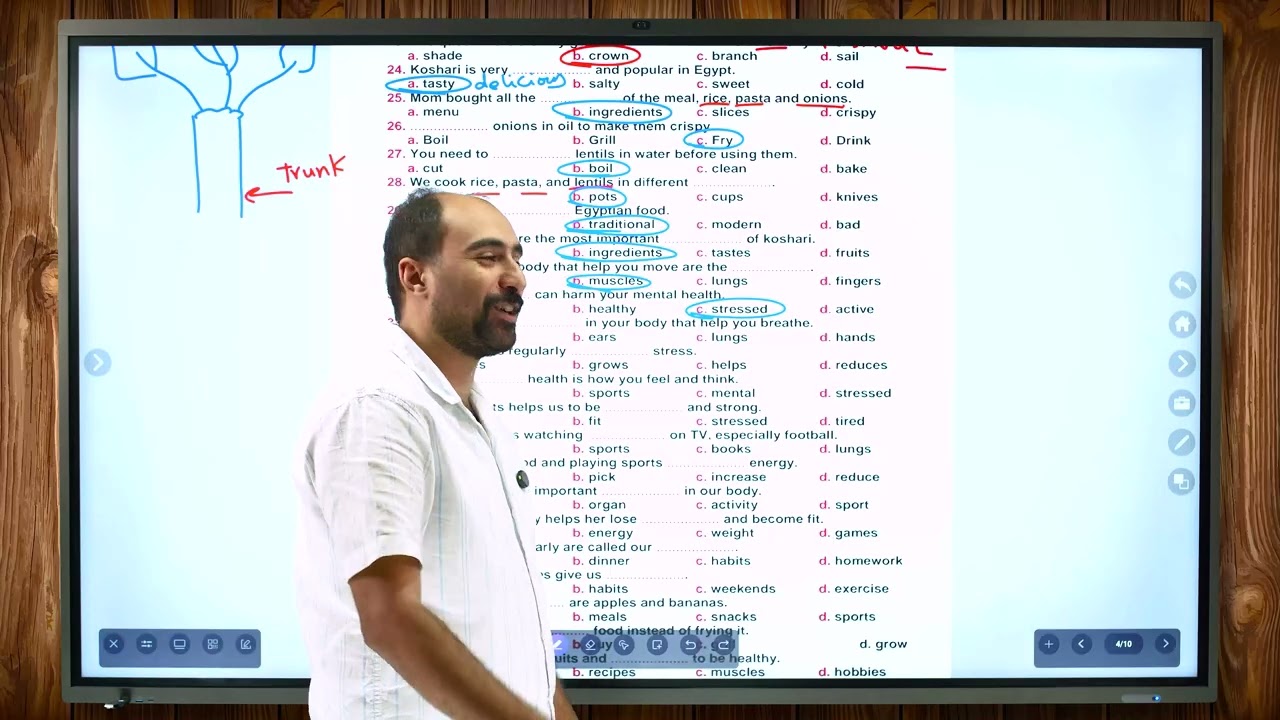 a. shade b. crown c. branch d. sail
24. Koshari is very ............ and popular in Egypt.
a. tasty delicious b. salty c. sweet d. cold
25. Mom bought all the ............ of the meal, rice, pasta and onions.
a. menu b. ingredients c. slices d. crispy
26. ............ onions in oil to make them crispy
a. Boil b. Grill c. Fry d. Drink
27. You need to ............ lentils in water before using them.
a. cut b. boil c. clean d. bake
trunk
28. We cook rice, pasta, and lentils in different ............
b. pots c. cups d. knives
............ Egyptian food.
b. traditional c. modern d. bad
re the most important ............ of koshari.
b. ingredients c. tastes d. fruits
body that help you move are the ............
b. muscles c. lungs d. fingers
can harm your mental health.
b. healthy c. stressed d. active
............ in your body that help you breathe.
b. ears c. lungs d. hands
regularly ............ stress.
b. grows c. helps d. reduces
............ health is how you feel and think.
b. sports c. mental d. stressed
ts helps us to be ............ and strong.
b. fit c. stressed d. tired
s watching ............ on TV, especially football.
b. sports c. books d. lungs
d and playing sports ............ energy.
b. pick c. increase d. reduce
important ............ in our body.
b. organ c. activity d. sport
y helps her lose ............ and become fit.
b. energy c. weight d. games
arly are called our ............
b. dinner c. habits d. homework
es give us ............
b. habits c. weekends d. exercise
.... are apples and bananas.
b. meals c. snacks d. sports
food instead of frying it.
d. grow
uits and ............ to be healthy.
b. recipes c. muscles d. hobbies
4/10